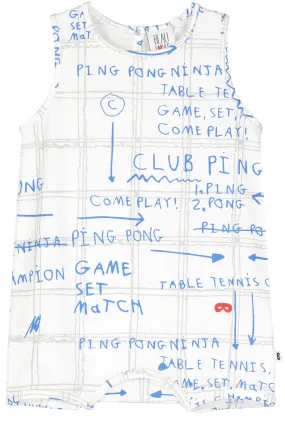 GAME
SET
MaTCH
BEAU
LOVES
PING PONG NINJA
TABLE TEN
C
GAME, SET,
COME PLAY!
CLUB PING
1. PING
ONG
COME PLAY!
2. PONG
PING PO
NINJA PING PONG
AMPION
GAME
SET
MaTCH
TABLE TENNIS C
PING PONG NINJA
TABLE TENNIS.
GAME, SET, MaTC
B